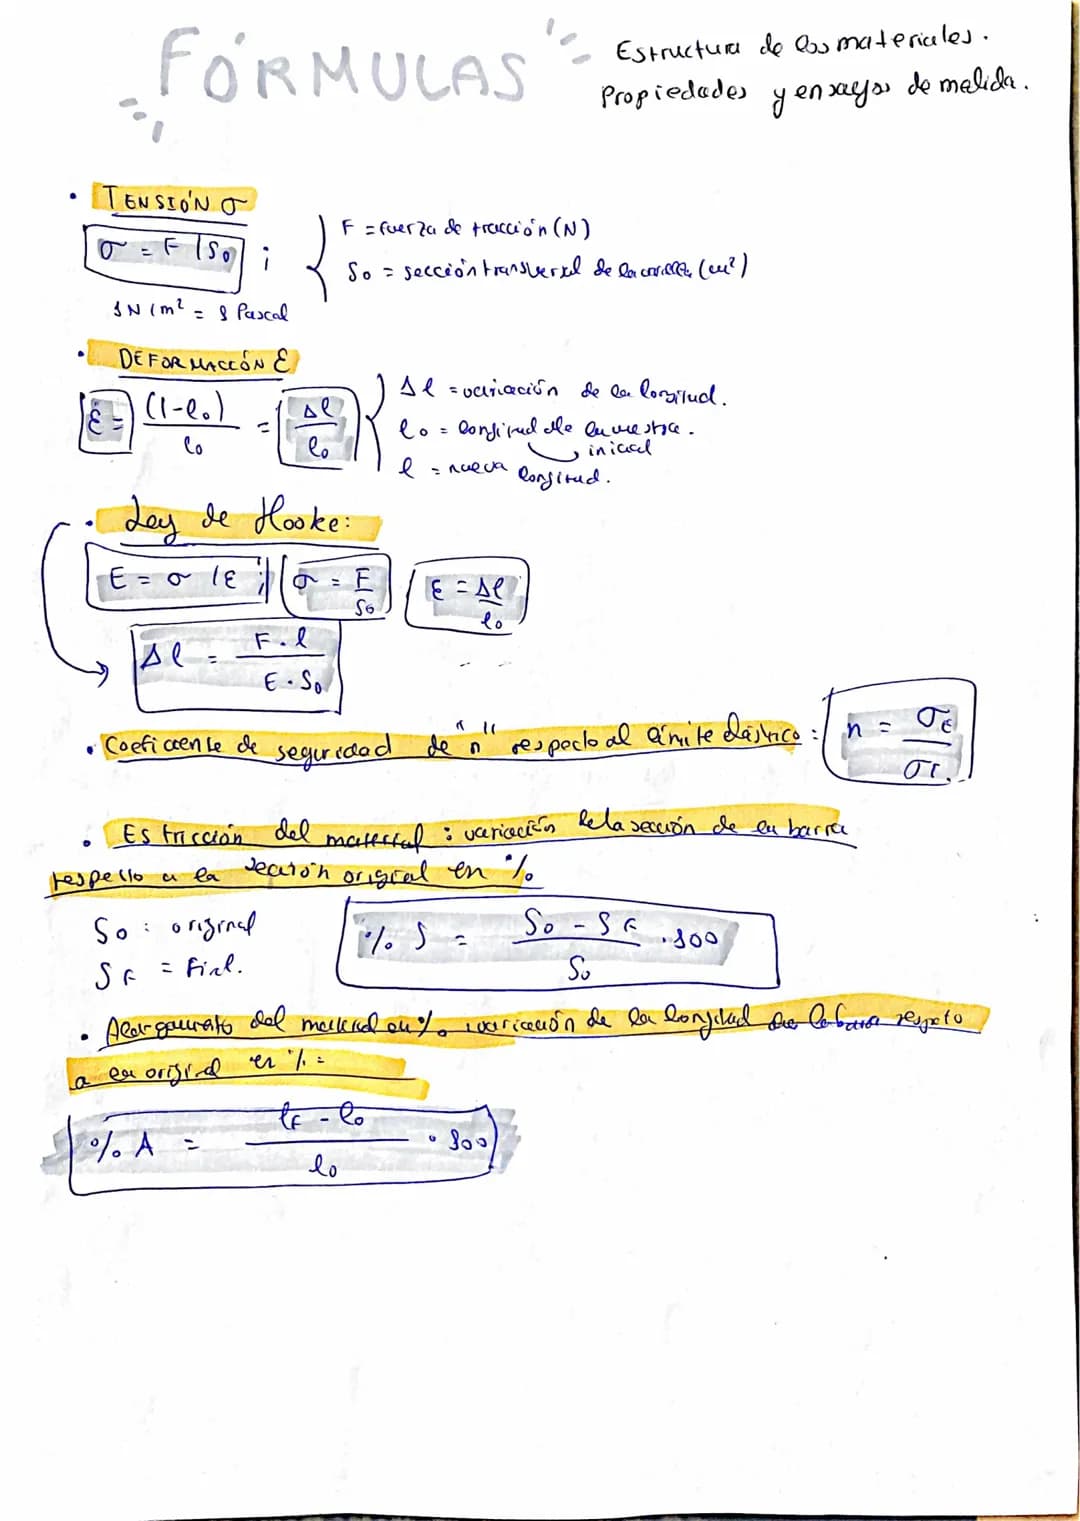 FÓRMULAS
Estructura de los materiales.
Propiedades y ensayos de medida.
• TENSIÓN σ
σ = F / S₀ ;
F = fuerza de tracción (N)
S₀ = sección transversal de la varilla (m²)
1N/m² = 1 Pascal
• DEFORMACCÓN ε
ε = (l-l₀) / l₀ = Δl / l₀
Δl = variación de la longitud.
l₀ = longitud de la muestra.
inicial
l = nueva longitud.
• Ley de Hooke:
E = σ / ε ; σ = F / S₀ ε = Δl / l₀
Δl = F · l / E · S₀
• Coeficiente de seguridad de "n" respecto al límite elástico : n = σE / σt
• Estricción del material : variación de la sección de la barra
respecto a la sección original en %
S₀ : original
SF = Final.
% S = S₀ - SF / S₀ · 100
• Alargamiento del material en % variación de la longitud de la barra respeto
a la original en % =
% A = lF - l₀ / l₀ · 100